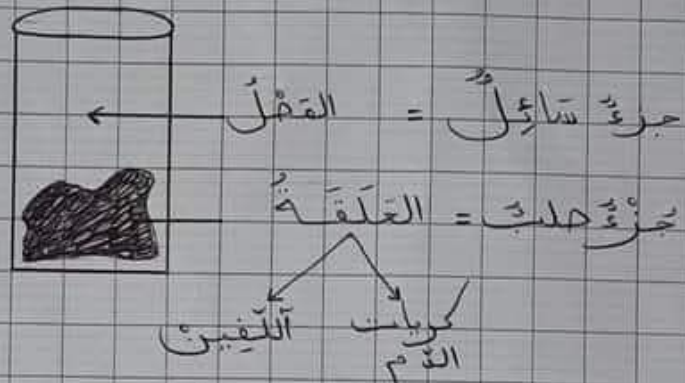 جزءٌ سَائِلٌ = المَصْلُ
جُزْءٌ صلبٌ = العَلَقَةُ
كريات الدّم
اَللِّيفِين